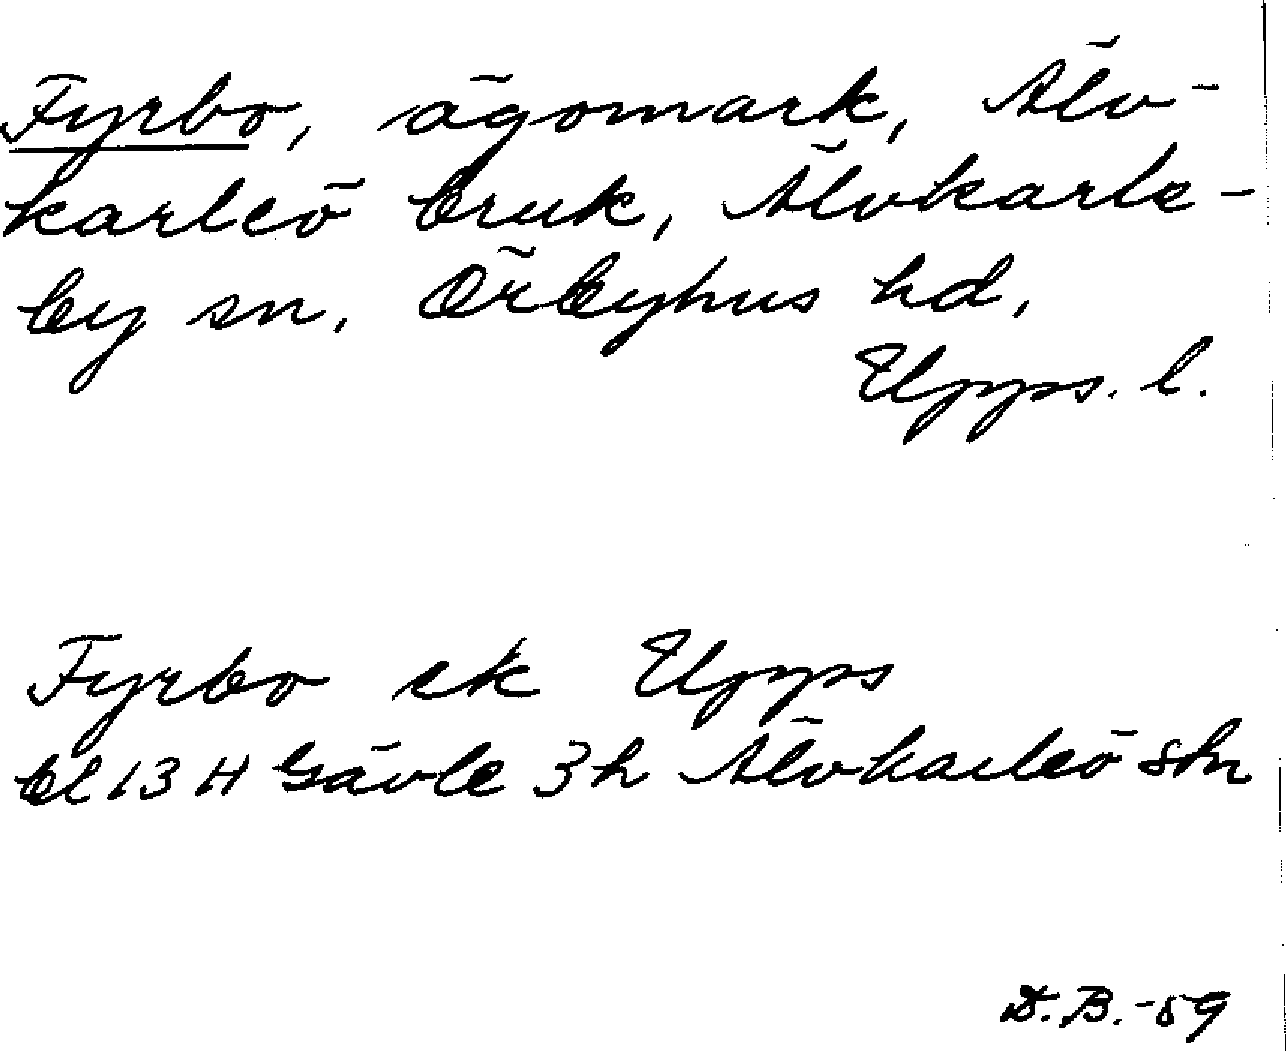 Fyrbo, ägomark, Älv-
karleö bruk, Älvkarle-
by sn, Örbyhus hd,
Upps. l.
Fyrbo ek Upps
bl 13 H Gävle 3h Älvkarleö shn
D.B.-59